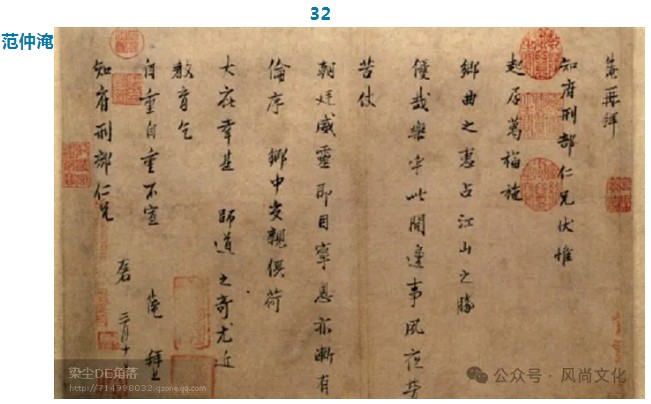 32
范仲淹
淹再拜
知府刑部仁兄伏惟
起居萬福施
鄉曲之惠占江山之勝
優哉樂乎此間邊事夙夜勞
苦仗
朝廷威靈即目寧息亦漸有
倫序 鄉中交親俱荷
大庇幸甚 師道之奇尤近
教育乞
自重自重不宣
淹 拜上
知府刑部仁兄
三月十
染尘DE角落
http://714998032.qzone.qq.com
公众号 · 风尚文化